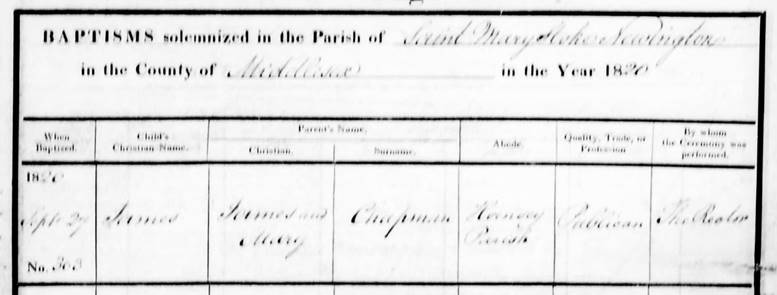 BAPTISMS solemnized in the Parish of Saint Mary Stoke Newington
in the County of Middlesex in the Year 1820
When Baptized. Child's Christian Name. Parent's Name. Abode. Quality, Trade, or Profession By whom the Ceremony was performed.
Christian. Surname.
1820
Sept 27 James James and Chapman Hornsey Publican The Rector
Mary Parish
No. 303